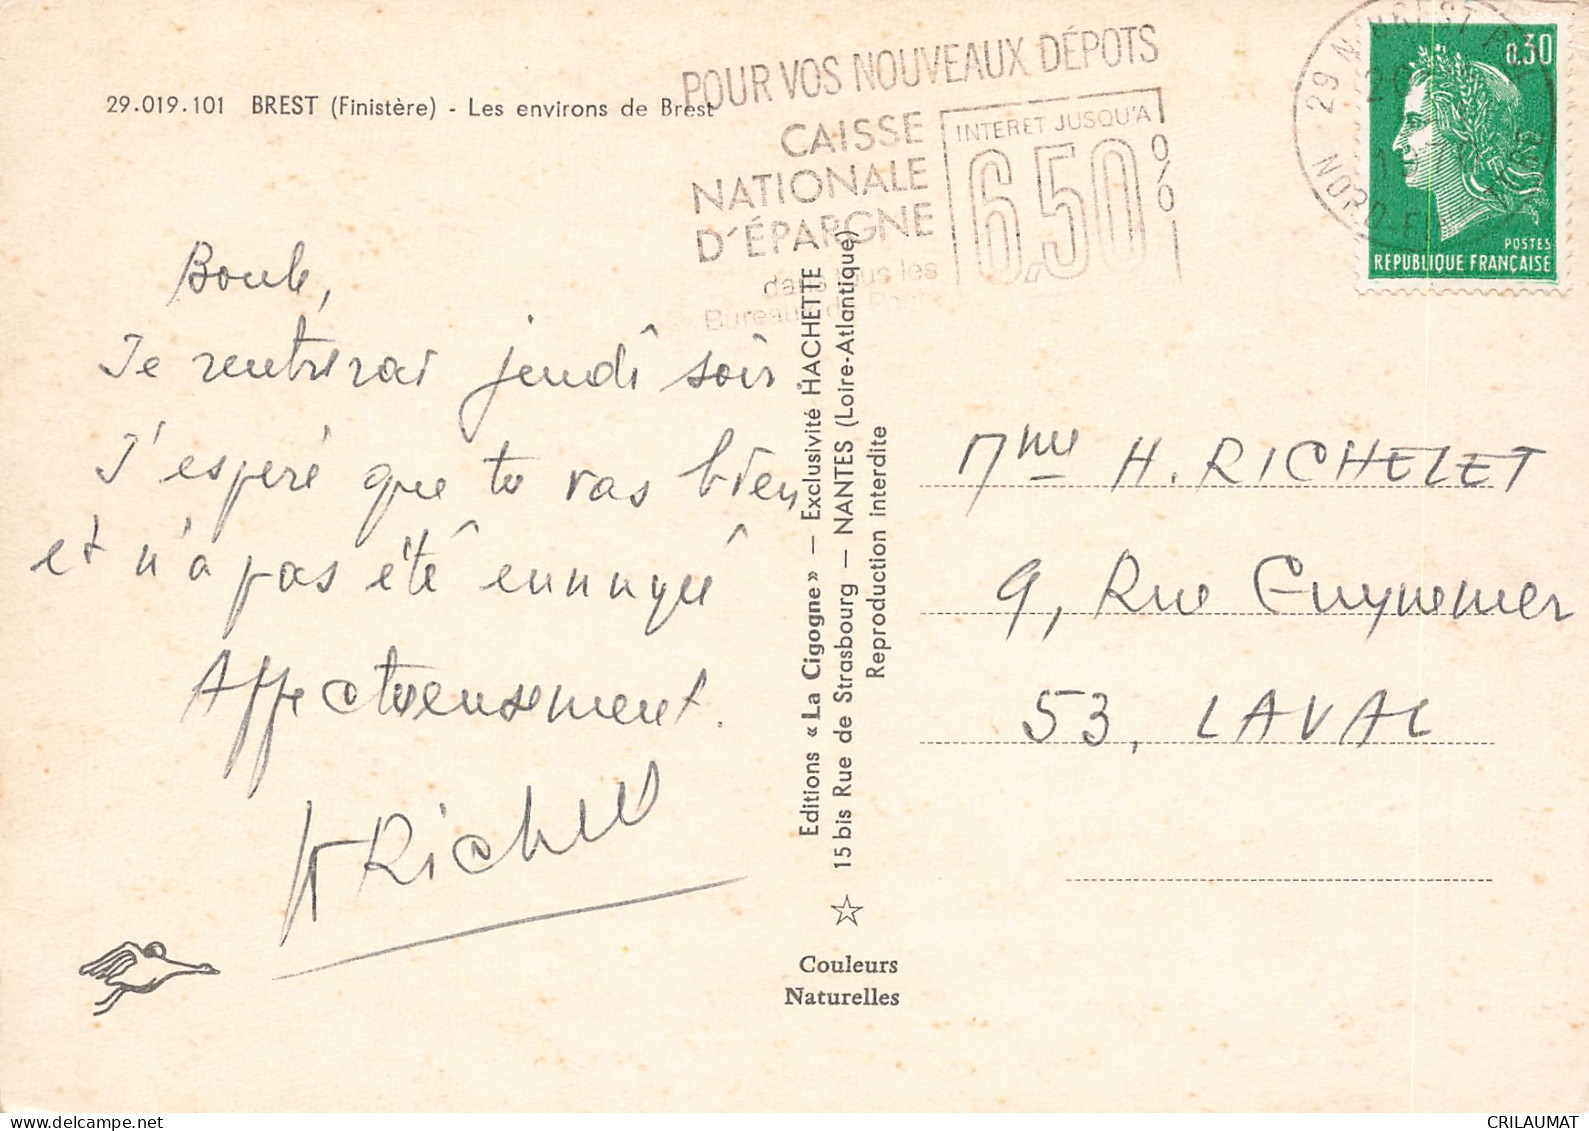 29.019.101 BREST (Finistère) - Les environs de Brest
POUR VOS NOUVEAUX DÉPOTS
CAISSE
NATIONALE
D'ÉPARGNE
dans tous les
Bureaux de Poste
INTERET JUSQU'A
6,50%
29 N BREST
NORD.E
0,30
POSTES
REPUBLIQUE FRANÇAISE
Je rentrerai jeudi soir
J'espere que tu vas bien
et n'a pas été ennuyé
Affectueusement.
HRichelet
Editions « La Cigogne » — Exclusivité HACHETTE
15 bis Rue de Strasbourg — NANTES (Loire-Atlantique)
Reproduction interdite
Couleurs
Naturelles
Mme H. RICHELET
9, Rue Guynemer
53, LAVAL
CRILAUMAT